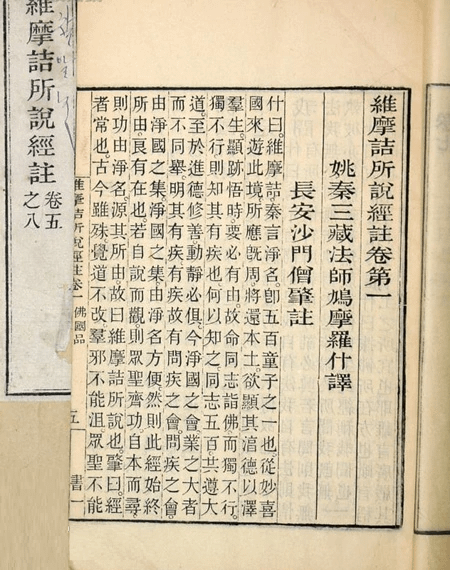 維摩詰所說經註卷第一
姚秦三藏法師鳩摩羅什譯
長安沙門僧肇註
什曰。維摩詰。秦言淨名。卽五百童子之一也。從妙喜
國來遊此境。所應旣周。將還本土。欲顯其淳德以澤
羣生。顯跡悟時。要必有由。故命同志詣佛而獨不行。
獨不行則知其有疾也。何以知之。同志五百共遵大
道。至於進德修善動靜必俱。今淨國之會。業之大者
而不同舉。明其有疾。有疾故有問疾之會。問疾之會
由淨國之集。淨國之集由淨名方便。然則此經始終
所由。良有在也。若自說而觀。則眾聖齊功。自本而尋。
則功由淨名。源其所由。故曰維摩詰所說也。肇曰。經
者常也。古今雖殊。覺道不改。羣邪不能沮。眾聖不能
維摩詰所說經註卷一 佛國品
五一
書一
維摩詰所說經註
卷五
之八